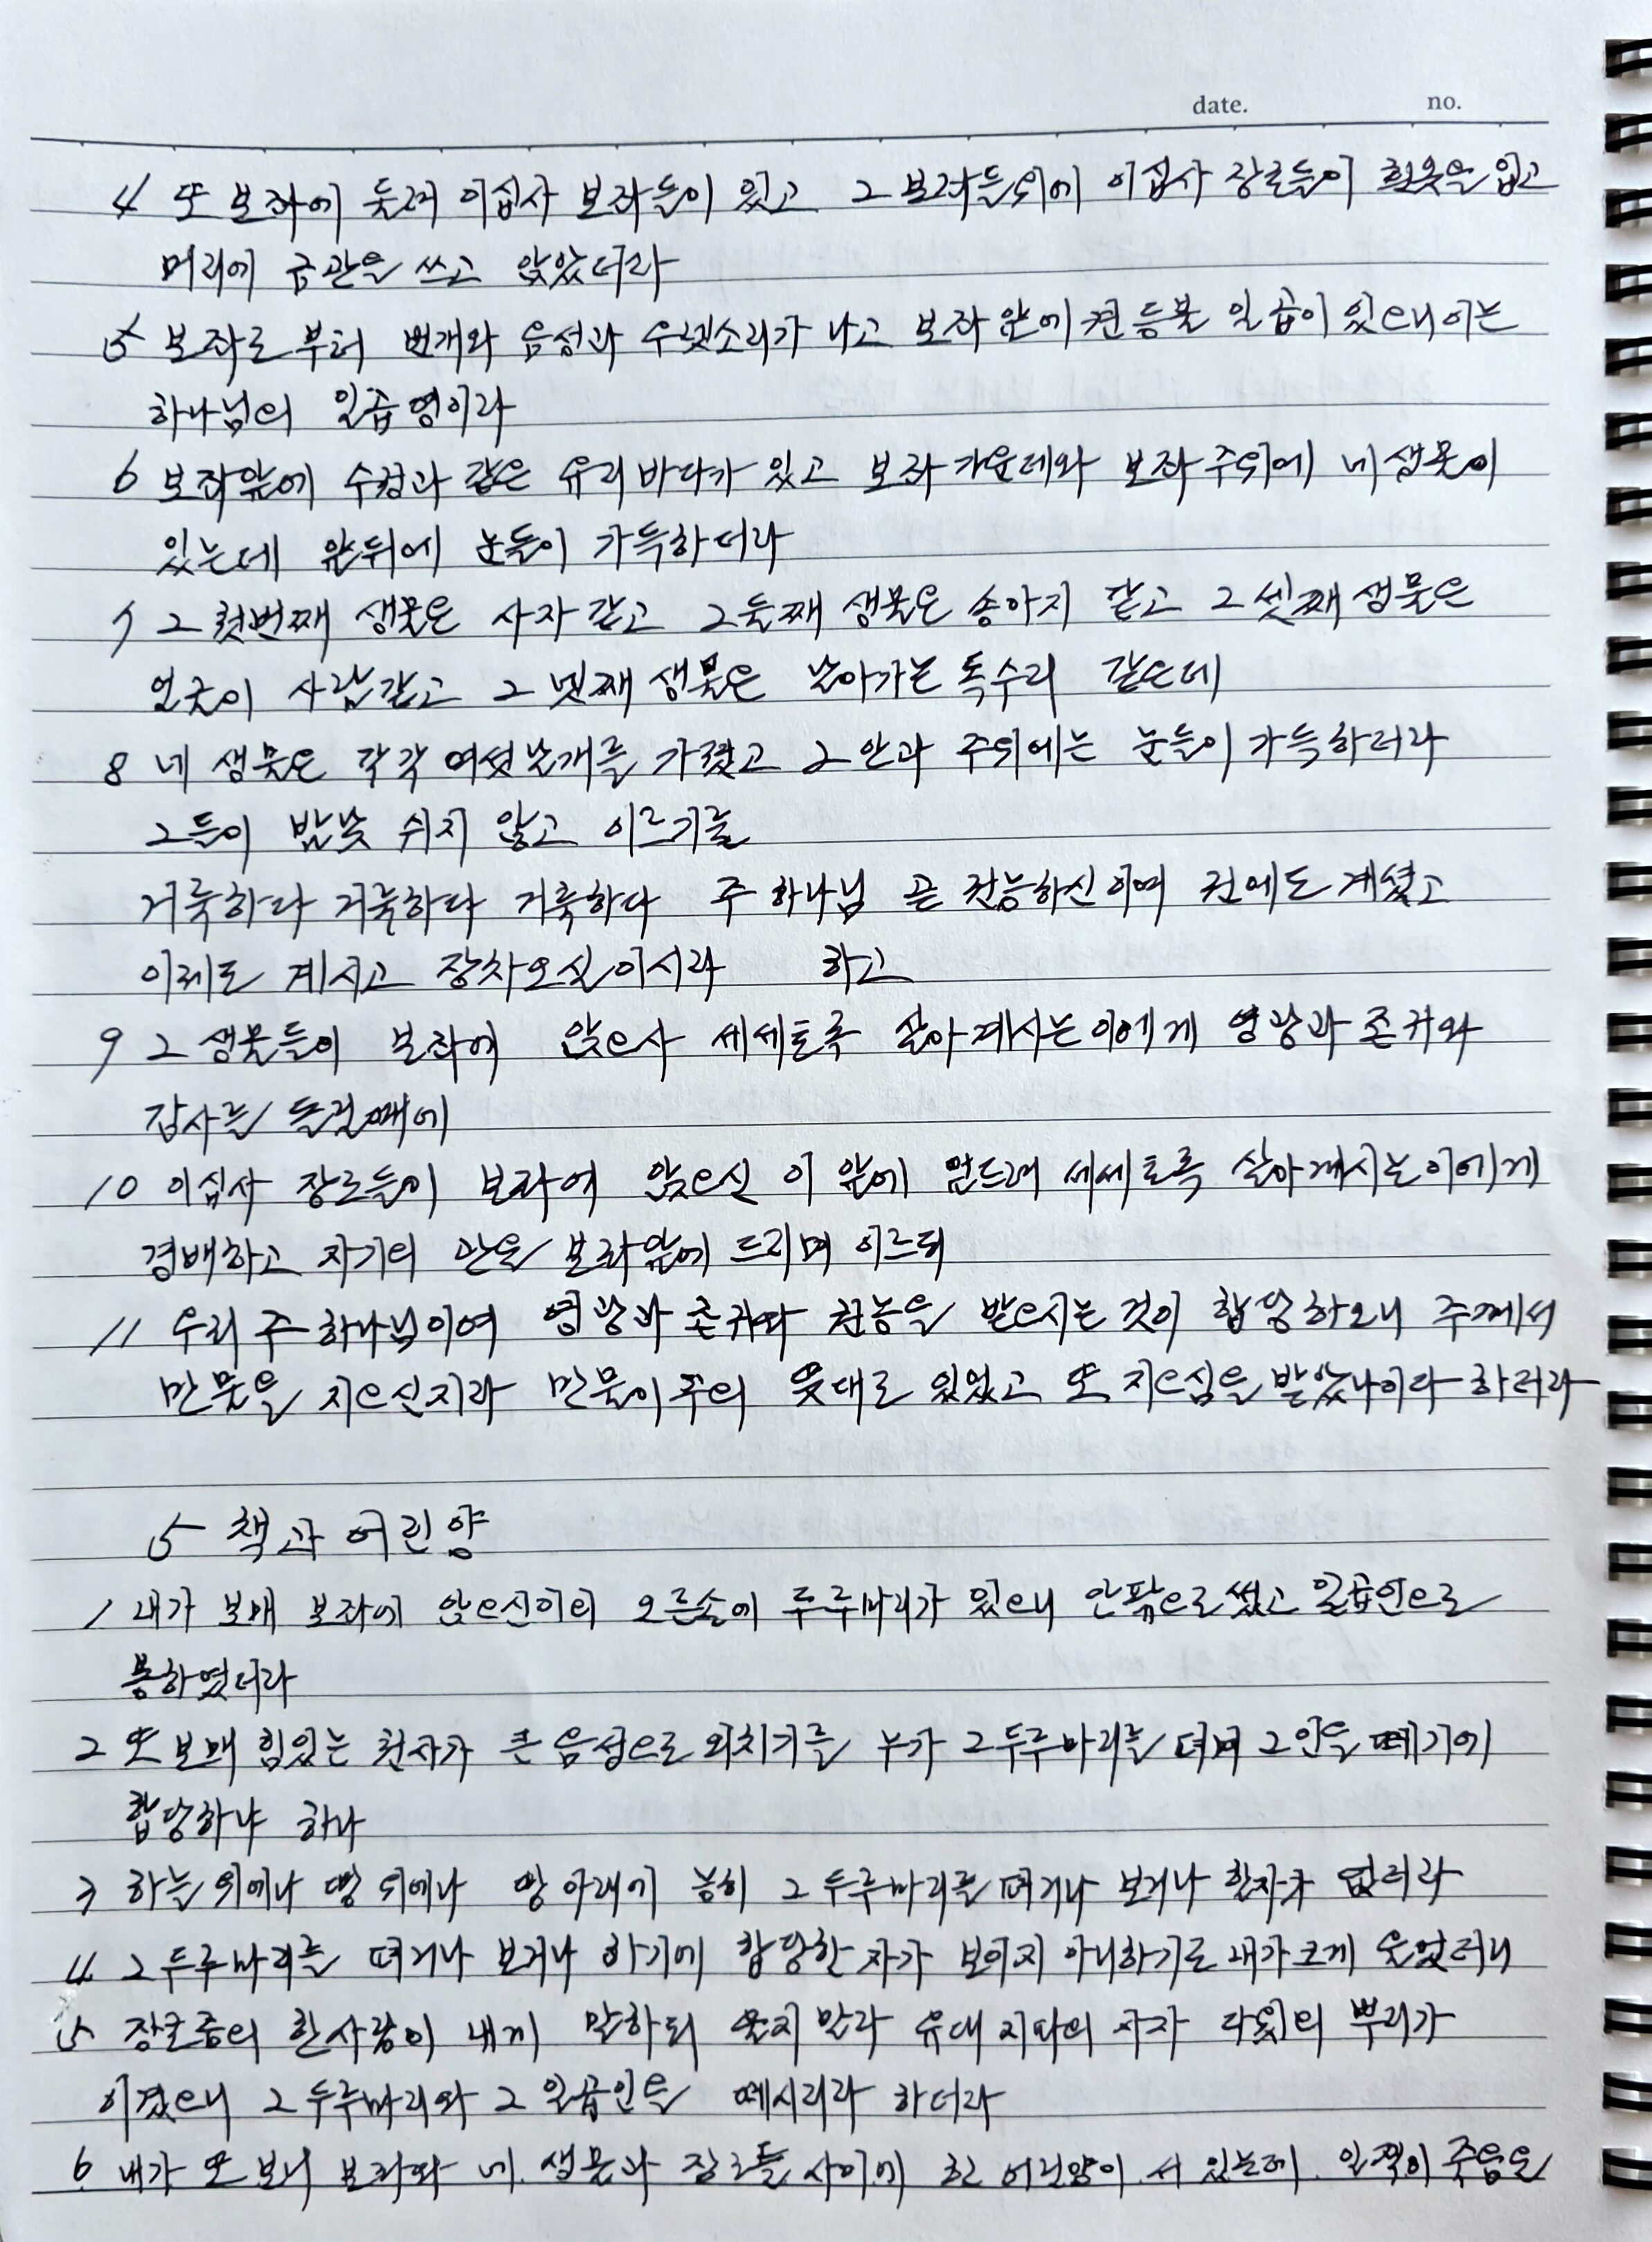 date. no.
4 또 보좌에 둘려 이십사 보좌들이 있고 그 보좌들 위에 이십사 장로들이 흰옷을 입고
머리에 금관을 쓰고 앉았더라
5 보좌로 부터 번개와 음성과 우렛소리가 나고 보좌 앞에 켠 등불 일곱이 있으니 이는
하나님의 일곱 영이라
6 보좌앞에 수정과 같은 유리 바다가 있고 보좌 가운데와 보좌 주위에 네 생물이
있는데 앞뒤에 눈들이 가득하더라
7 그 첫번째 생물은 사자 같고 그 둘째 생물은 송아지 같고 그 셋째 생물은
얼굴이 사람같고 그 넷째 생물은 날아가는 독수리 같은데
8 네 생물은 각각 여섯 날개를 가졌고 그 안과 주위에는 눈들이 가득하더라
그들이 밤낮 쉬지 않고 이르기를
거룩하다 거룩하다 거룩하다 주 하나님 곧 전능하신 이여 전에도 계셨고
이제도 계시고 장차오실 이시라 하고
9 그 생물들이 보좌에 앉으사 세세토록 살아 계시는 이에게 영광과 존귀와
감사를 돌릴때에
10 이십사 장로들이 보좌에 앉으신 이 앞에 엎드려 세세토록 살아계시는 이에게
경배하고 자기의 관을 보좌앞에 드리며 이르되
11 우리 주 하나님이여 영광과 존귀와 권능을 받으시는 것이 합당하오니 주께서
만물을 지으신지라 만물이 주의 뜻대로 있었고 또 지으심을 받았나이다 하더라
5 책과 어린양
1 내가 보매 보좌에 앉으신이의 오른손에 두루마리가 있으니 안팎으로 썼고 일곱인으로
봉하였더라
2 또 보매 힘있는 천사가 큰 음성으로 외치기를 누가 그 두루마리를 펴며 그 인을 떼기에
합당하냐 하나
3 하늘 위에나 땅 위에나 땅 아래에 능히 그 두루마리를 펴거나 보거나 할자가 없더라
4 그 두루마리를 펴거나 보거나 하기에 합당한 자가 보이지 아니하기로 내가 크게 울었더니
5 장로중의 한사람이 내게 말하되 울지 말라 유대 지파의 사자 다윗의 뿌리가
이겼으니 그 두루마리와 그 일곱인을 떼시리라 하더라
6 내가 또 보니 보좌와 네 생물과 장로들 사이에 한 어린양이 서 있는데 일찍이 죽음을